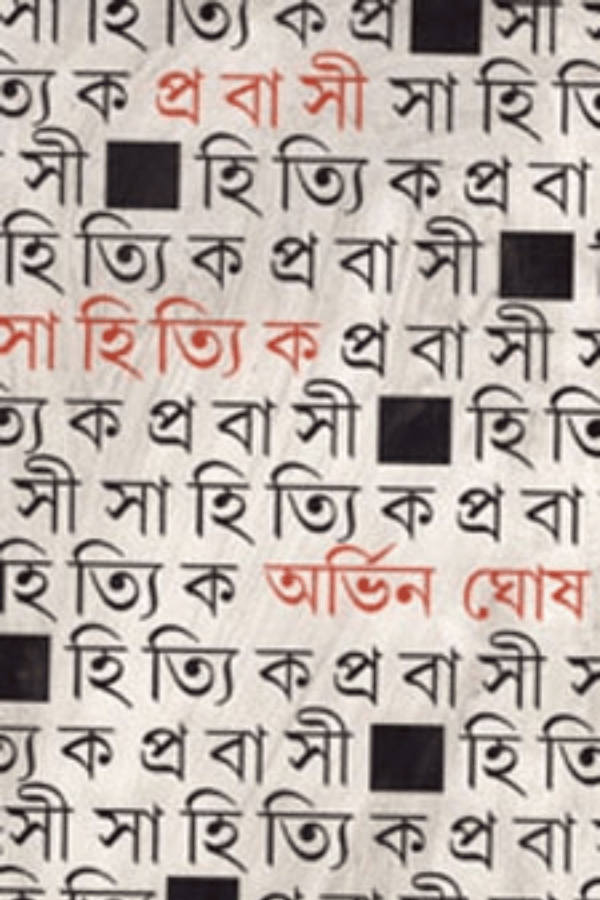 সা হি ত্যি ক প্র ■ সা
ত্যি ক প্র বা সী সা হি ত্যি
সী ■ হি ত্যি ক প্র বা
হি ত্যি ক প্র বা সী ■
সা হি ত্যি ক প্র বা সী
ত্যি ক প্র বা সী ■ হি ত্যি
সী সা হি ত্যি ক প্র বা
হি ত্যি ক অর্ভিন ঘোষ
■ হি ত্যি ক প্র বা সী
ত্যি ক প্র বা সী ■ হি ত্যি
সী সা হি ত্যি ক প্র বা